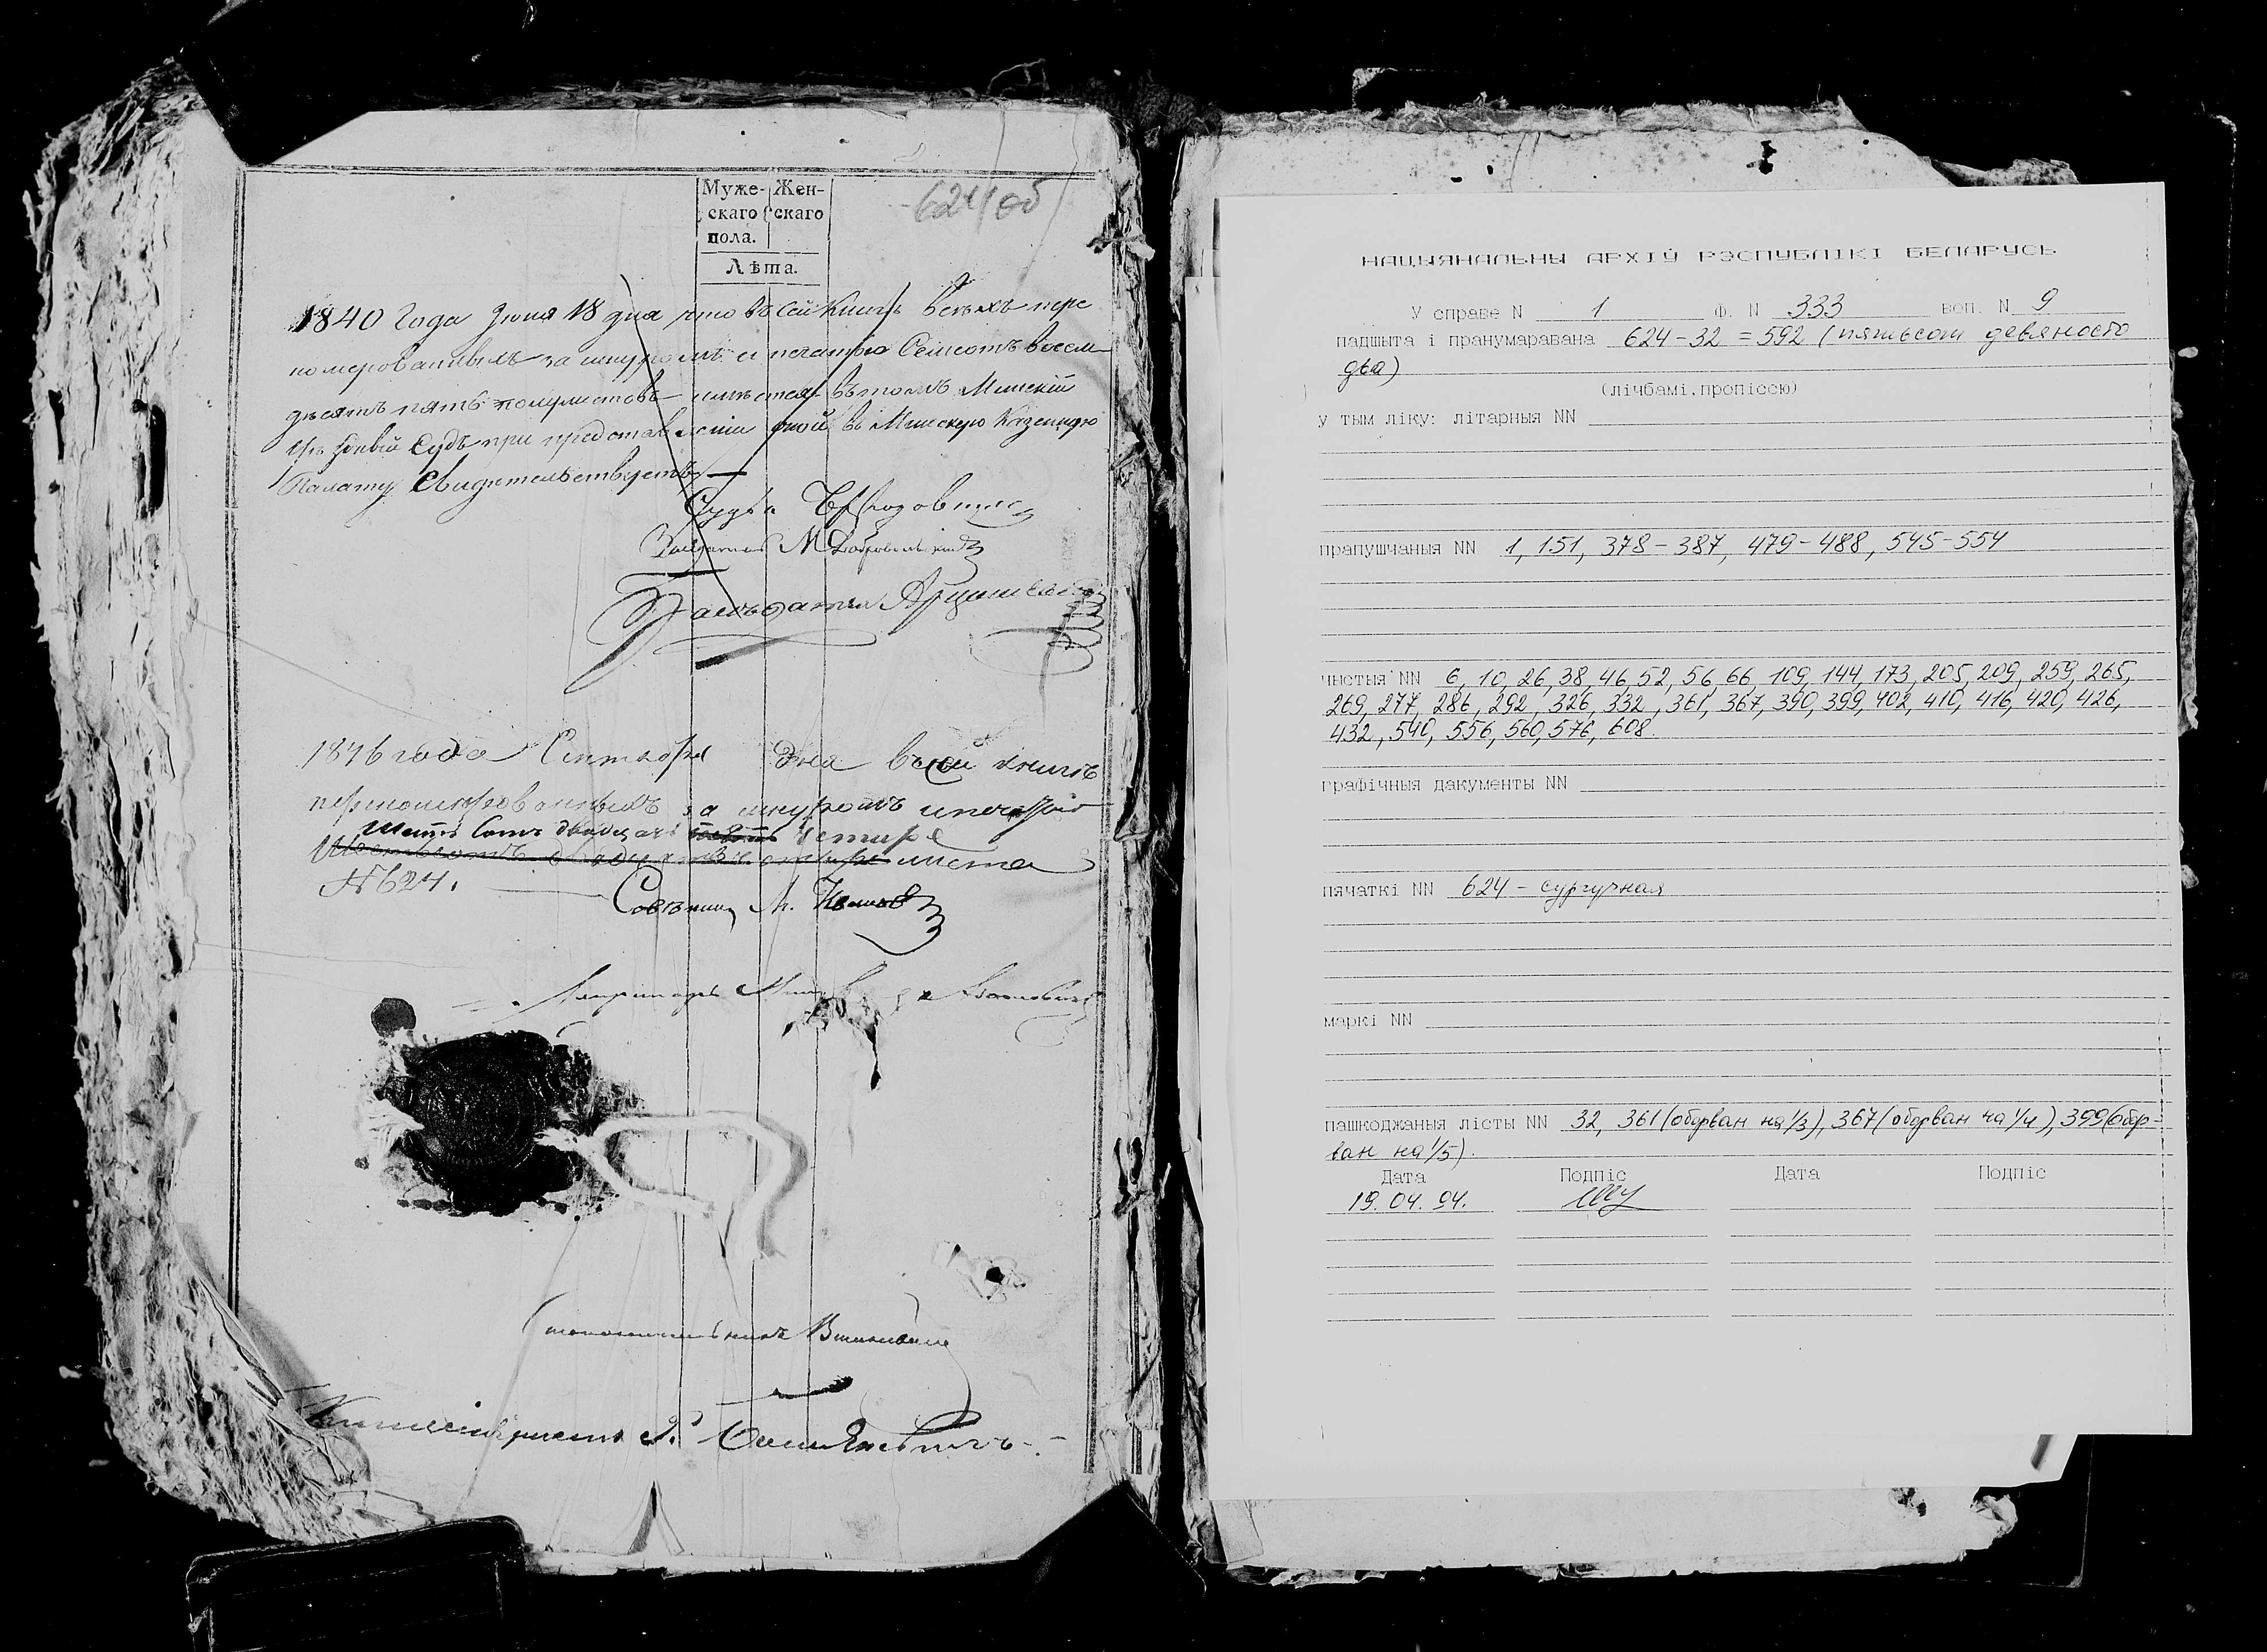 624/об
Муже- Жен-
скаго скаго
пола.
Лѣта.
1840 Года Июня 18 дня что въ сей Книгѣ всѣхъ пере
номерованныхъ за шнуромъ и печатью Семсотъ восем
десятъ пять полулистовъ имѣется въ томъ Минскій
Судъ при представленіи оной въ Минскую Казенную
Палату Свидетельствуетъ
Судья
Засѣдатель М
Засѣдатель
1846 года Сентября дня въ сей книгѣ
перенумерованныхъ за шнуромъ и печатью
Шесть Сотъ двадцать четыре
Шестьсотъ двадцать четыре листа
№ 624.
Совѣтникъ
Столоначальникъ
НАЦЫЯНАЛЬНЫ АРХІЎ РЭСПУБЛІКІ БЕЛАРУСЬ
У справе N 1 Ф. N 333 воп. N 9
падшыта і пранумаравана 624-32 = 592 (пятьсот девяносто
два)
(лічбамі, пропіссю)
у тым ліку: літарныя NN
прапушчаныя NN 1, 151, 378-387, 479-488, 545-554
чыстыя NN 6, 10, 26, 38, 46, 52, 56, 66, 109, 144, 173, 205, 209, 259, 265,
269, 277, 286, 292, 326, 332, 361, 367, 390, 399, 402, 410, 416, 420, 426,
432, 540, 556, 560, 576, 608.
графічныя дакументы NN
пячаткі NN 624 - сургучная
маркі NN
пашкоджаныя лісты NN 32, 361 (оборван на 1/3), 367 (оборван на 1/4), 399 (обор-
ван на 1/5).
Дата Подпіс Дата Подпіс
19.04.94.